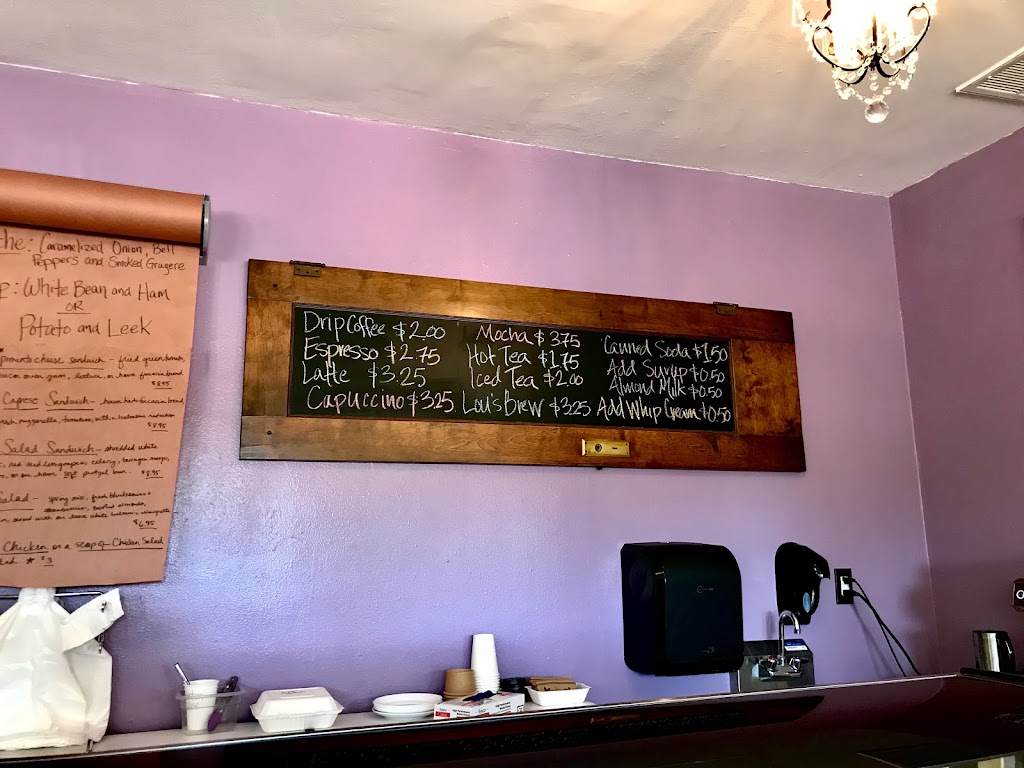 che: Caramelized Onion, Bell
Peppers and Smoked Grugere
P: White Bean and Ham
OR
Potato and Leek
cheese sandwich - fried green tomato,
$8.95
Caprese Sandwich -
$8.95
Salad Sandwich - shredded white
celery,
pretzel bun. - $8.95
Salad - spring mix, fresh blueberries +
toasted almonds,
$6.95
Chicken or a scoop of Chicken Salad
$3
Drip Coffee $2.00
Espresso $2.75
Latte $3.25
Capuccino $3.25
Mocha $3.75
Hot Tea $1.75
Iced Tea $2.00
Lou's Brew $3.25
Canned Soda $1.50
Add Syrup $0.50
Almond Milk $0.50
Add Whip Cream $0.50